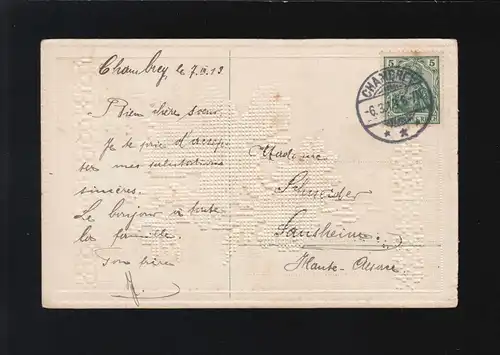 Chambrey le 7.III.13
Bien chère sœur.
Je te prie d'accep-
ter mes salutations
sincères.
Le bonjour à toute
la famille.
Ton frère
5 5
CHAMBREY
-6.3.13
Madame
Schneider
Sausheim
Haute-Alsace.